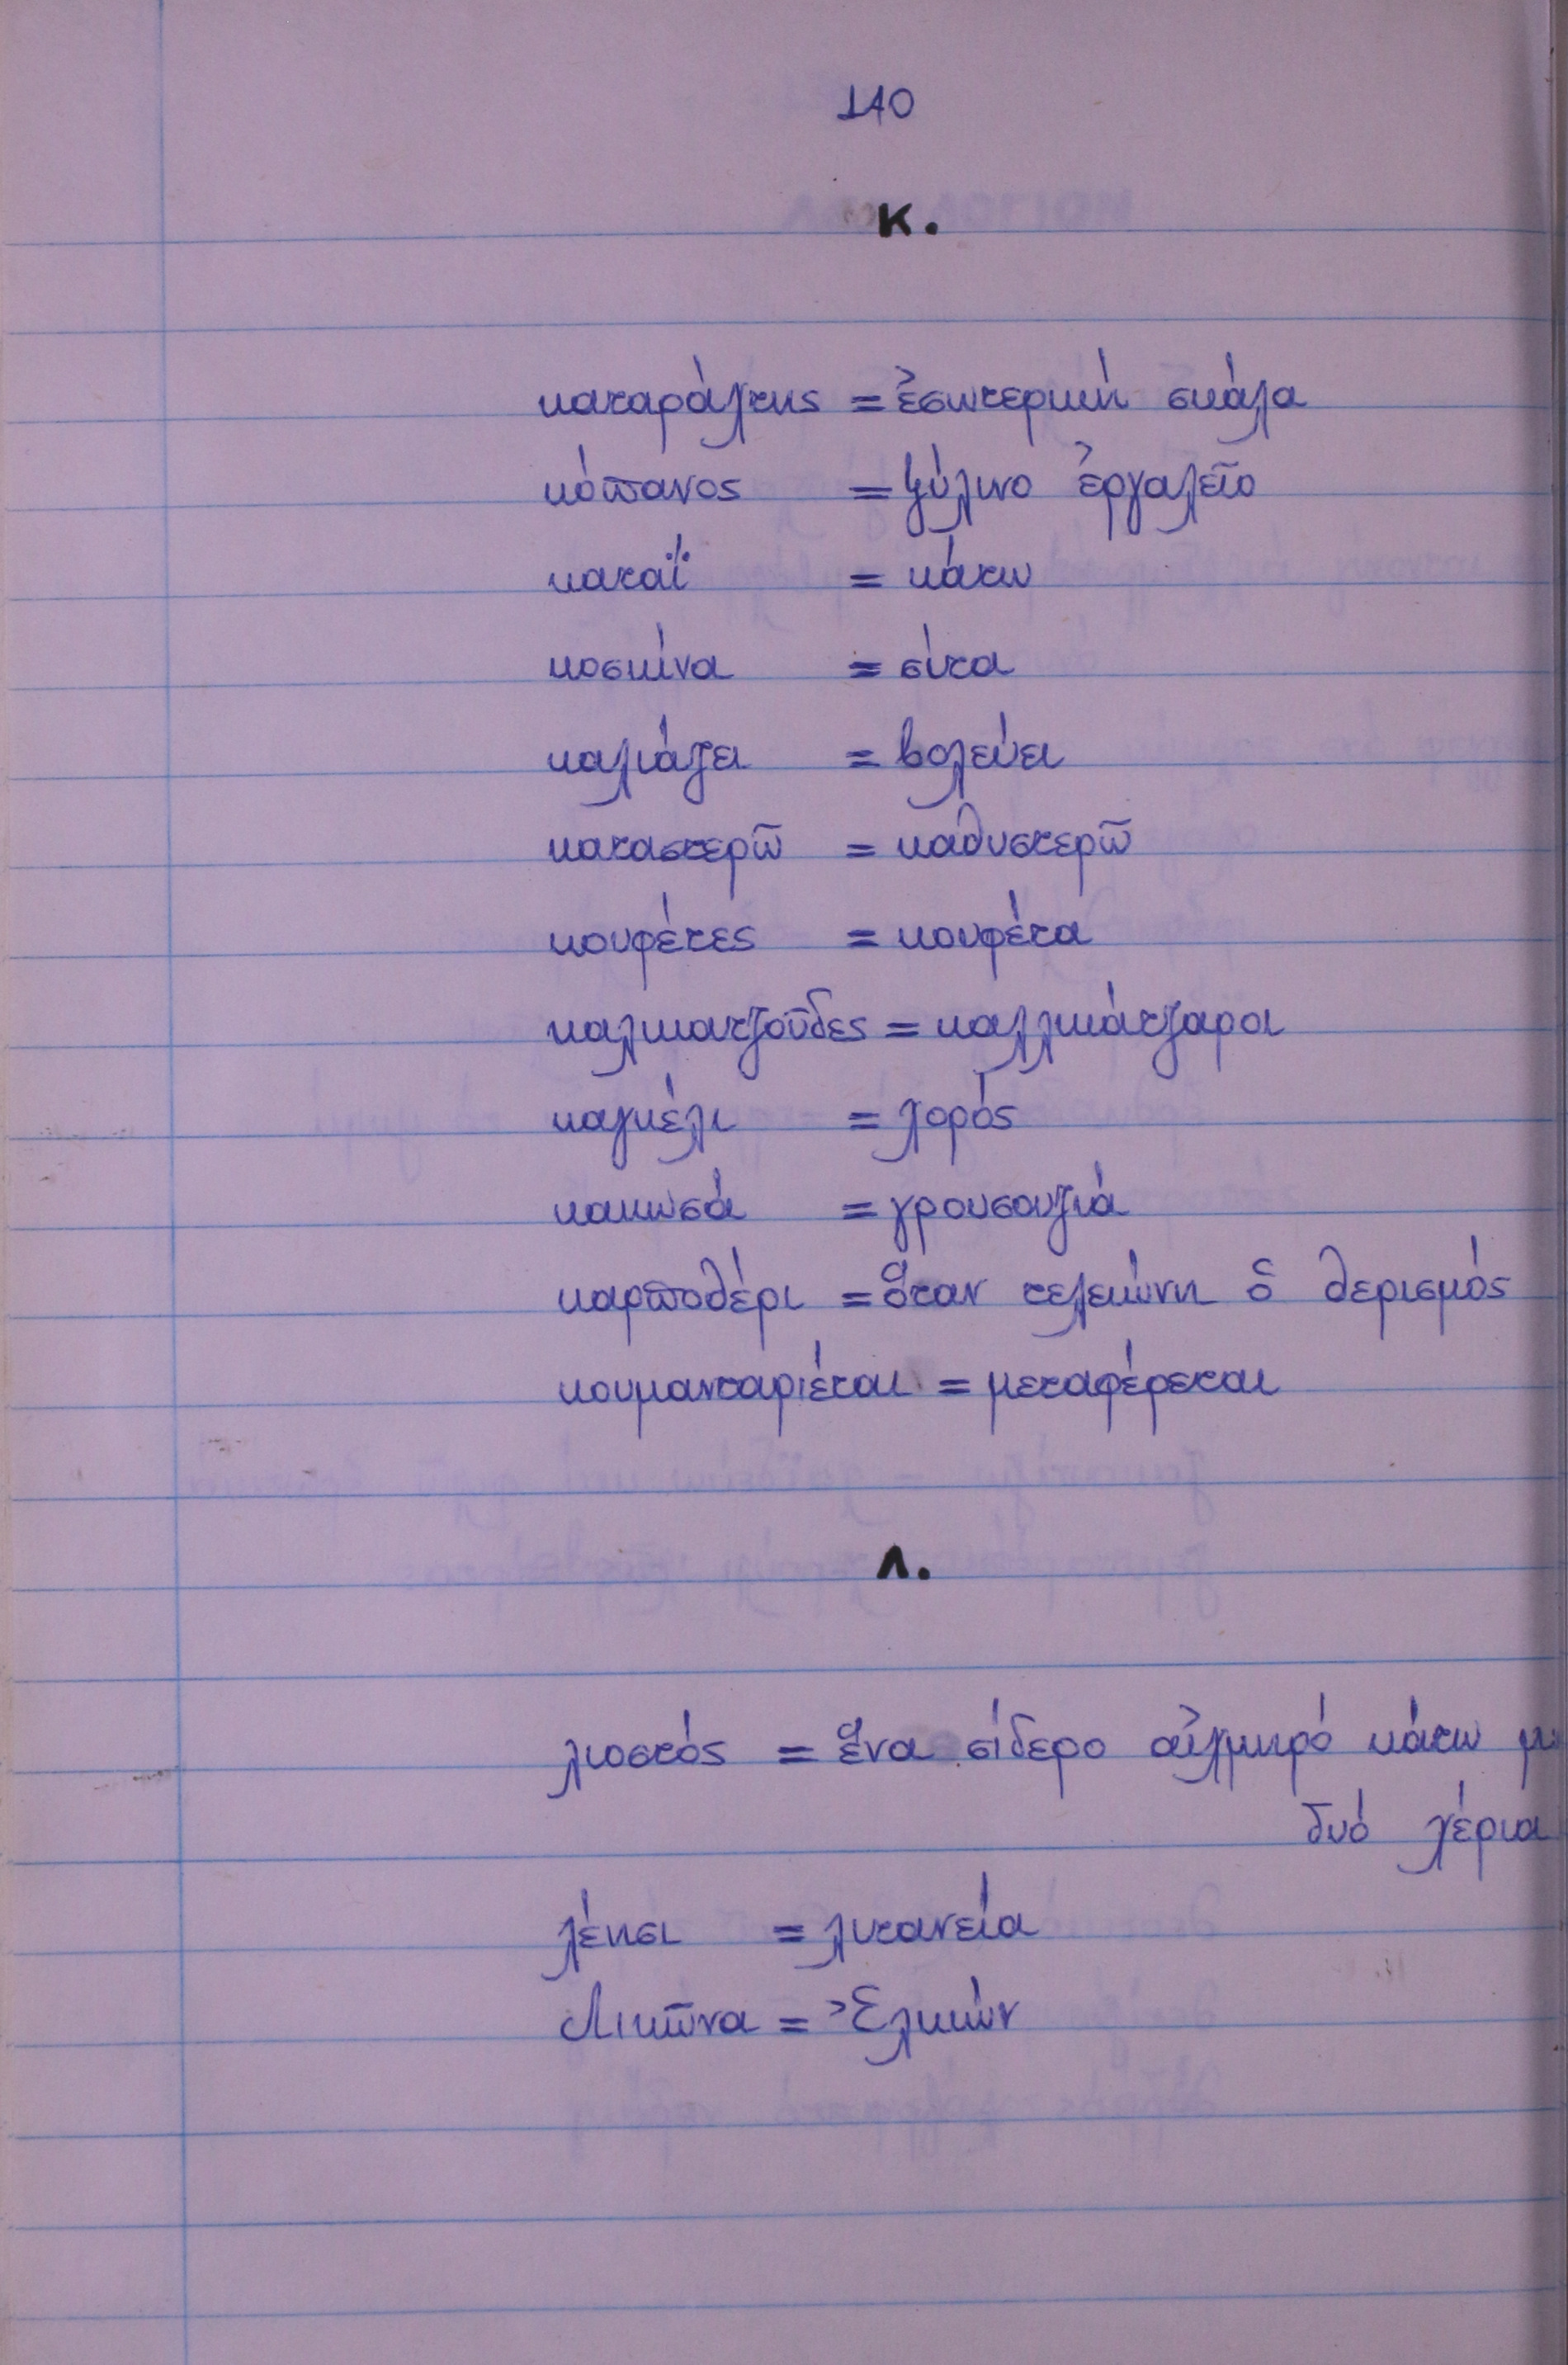 110
Κ.
καταράχτης = ἐσωτερική σκάλα
κόπανος = ξύλινο ἐργαλεῖο
καταΐ = κάτω
κοσκίνα = σίτα
καλιάζει = βολεύει
καταστερῶ = καθυστερῶ
κουφέτες = κουφέτα
καλικατζοῦδες = καλλικάτζαροι
καγκέλι = χορός
κακωσά = γρουσουζιά
καρποθέρι = ὅταν τελειώνη ὁ θερισμός
κουμανταριέται = μεταφέρεται
Λ.
λιοστός = ἕνα σίδερο αἰχμηρό κάτω με
δυό χέρια
λέησι = λιτανεία
Λικῶνα = Ἑλικών